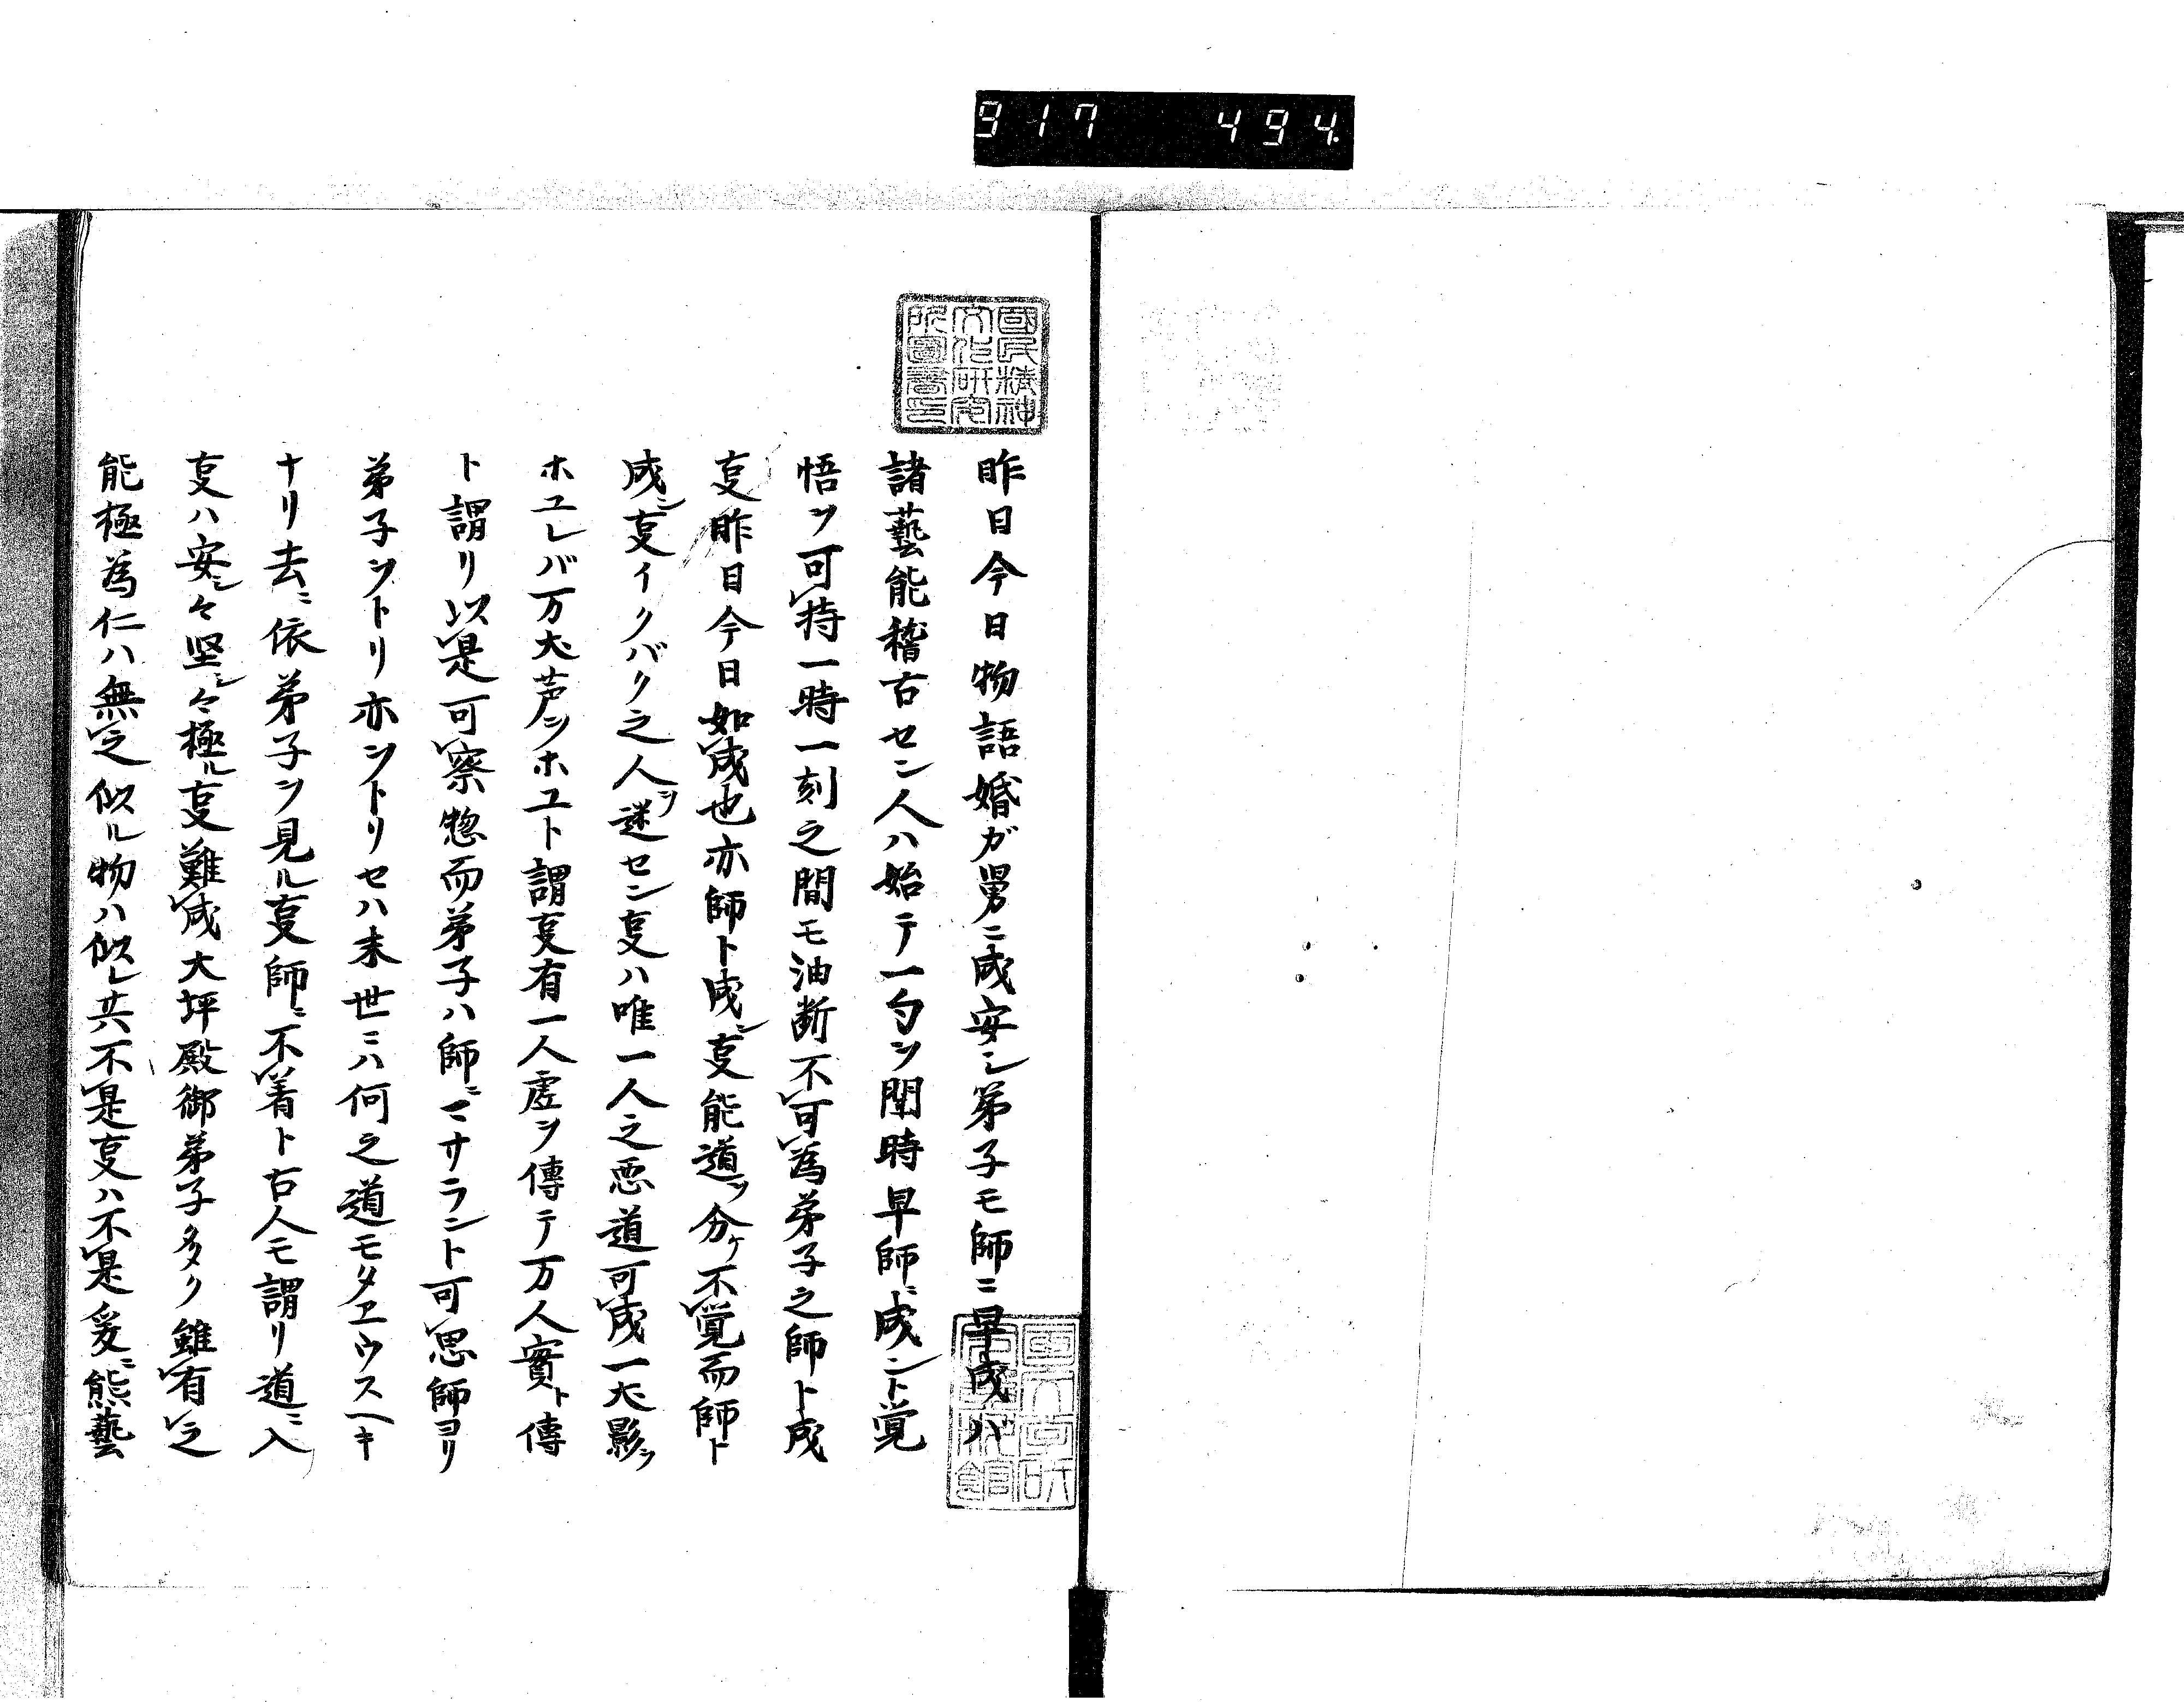 917 494
國民精神
文化研究
所圖書印
昨日今日物語婚ガ舅ニ成安シ弟子モ師ニ早成バ
諸藝能稽古セン人ハ始テ一勺ヲ聞時早師ニ成ント覚
悟ヲ可レ持一時一刻之間モ油断不レ可レ為弟子之師ト成
叓昨日今日如レ成也亦師ト成ン叓能道ヲ分ケ不レ覚而師ト
成ン叓イクバク之人ヲ迷セン叓ハ唯一人之悪道可レ成一犬影ヲ
ホユレバ万犬声ヲホユト謂叓有一人虚ヲ傳テ万人實ト傳
ト謂リ以レ是可レ察惣而弟子ハ師ニマサラント可レ思師ヨリ
弟子ヲトリ亦ヲトリセハ末世ニハ何之道モタヱウスヘキ
ナリ去ニ依弟子ヲ見ル叓師ニ不レ着ト古人モ謂リ道ニ入
叓ハ安シ々堅シ々極ル叓難レ成大坪殿御弟子多ク雖レ有レ之
能極為仁ハ無レ之似ル物ハ似レ共不レ是叓ハ不レ是爰ニ熊藝